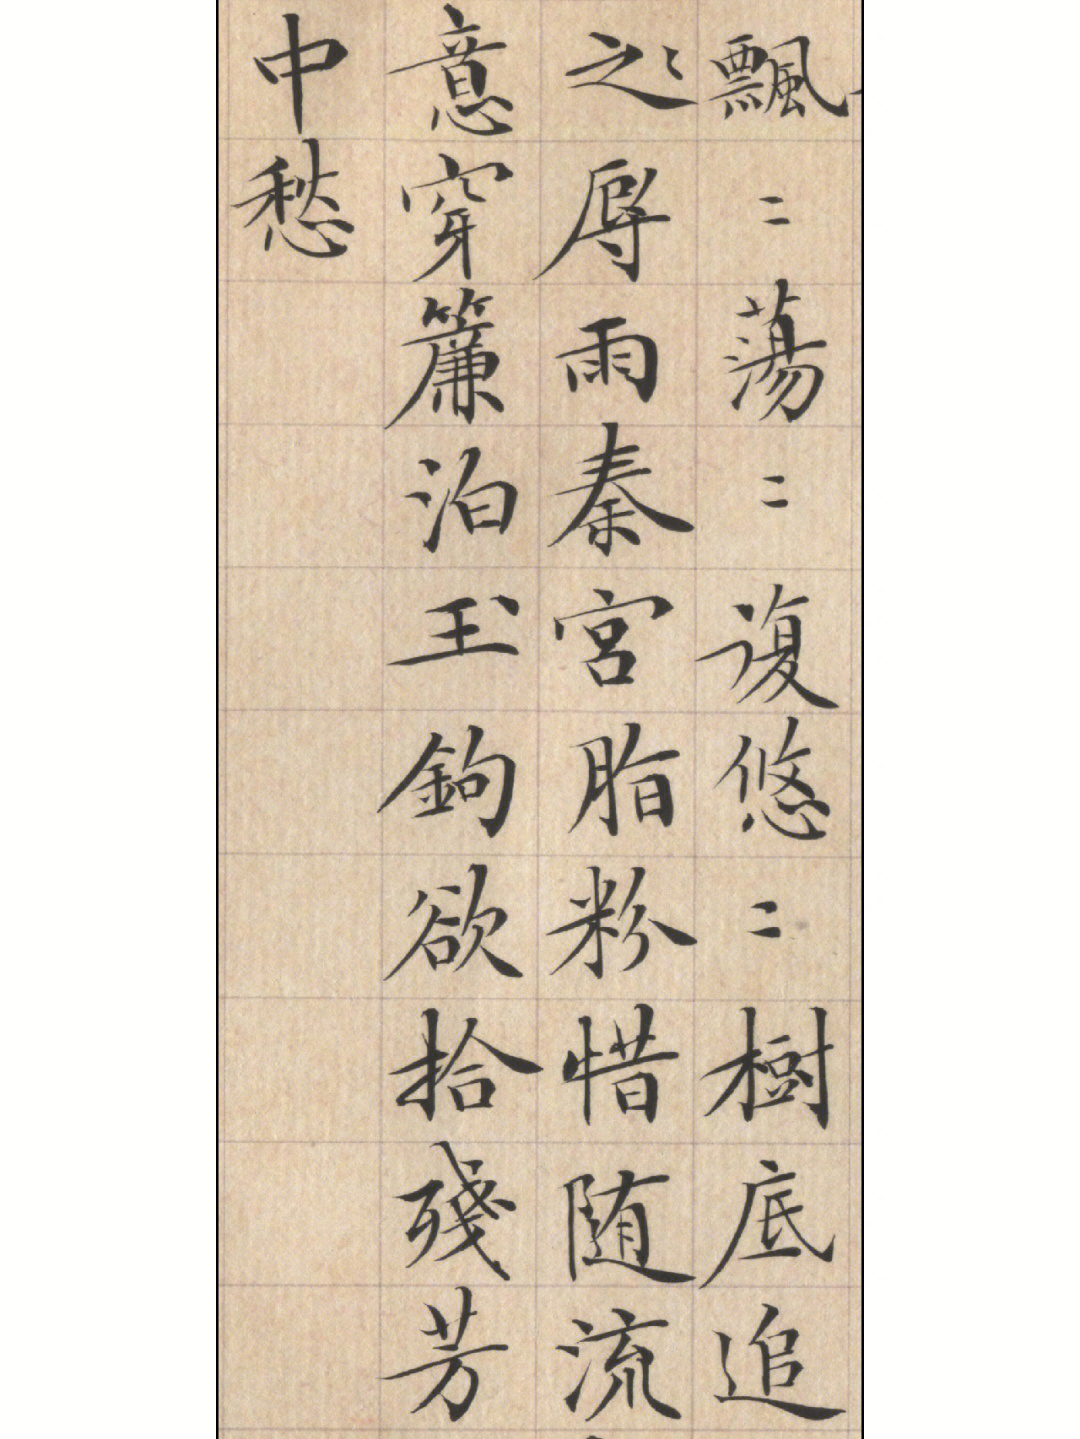 飄〻蕩〻復悠〻樹底追
之辱雨秦宮脂粉惜随流
意穿簾泊玉鉤欲拾殘芳
中愁